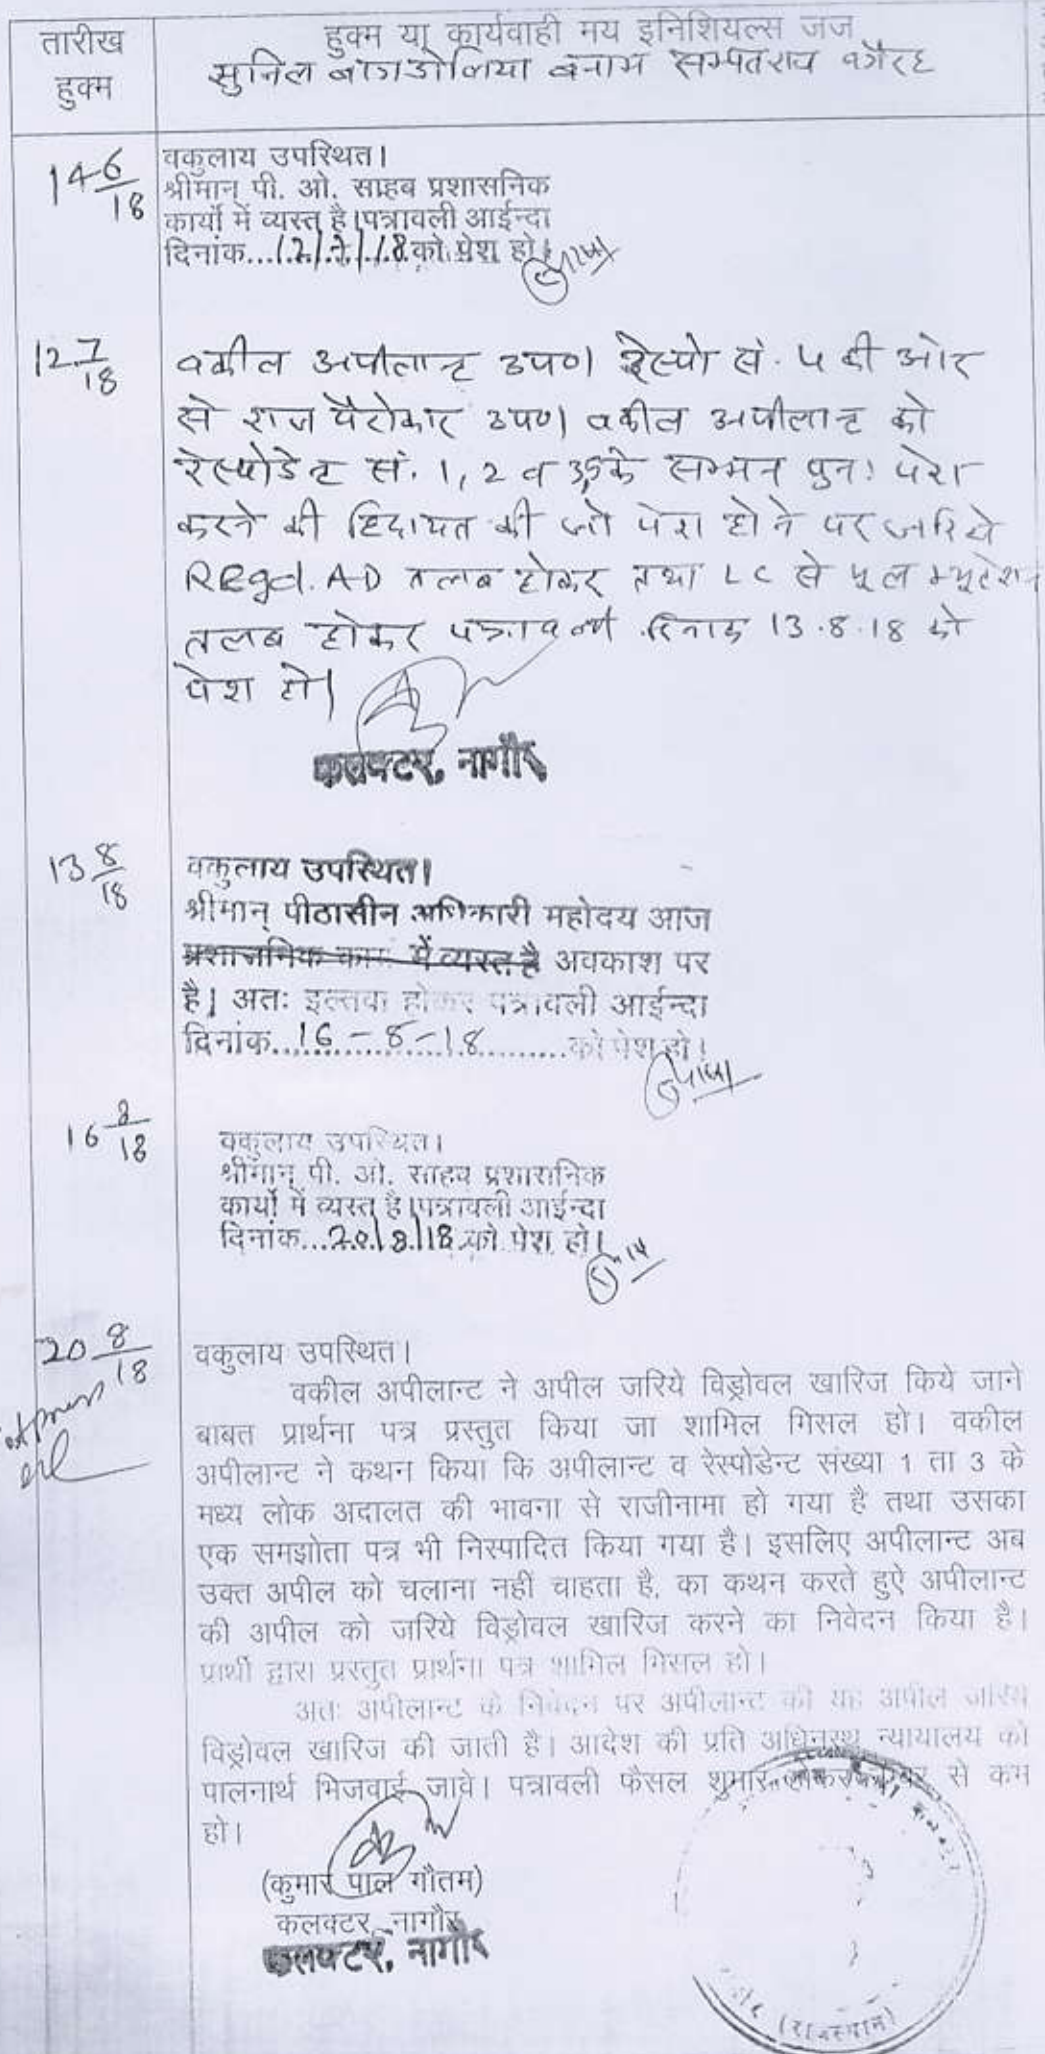 तारीख
हुक्म
हुक्म या कार्यवाही मय इनिशियल्स जज
सुनिल बागडोलिया बनाम सम्पतराय वगैरह
14 6/18
वकुलाय उपस्थित।
श्रीमान् पी. ओ. साहब प्रशासनिक
कार्यो में व्यस्त है।पत्रावली आईन्दा
दिनांक...12/7/18.को पेश हो।
12 7/18
वकील अपीलान्ट उप०। रेस्पो सं. 4 की ओर
से राज पैरोकार उप०। वकील अपीलान्ट को
रेस्पोडेन्ट सं. 1, 2 व 3 के सम्मन पुन: पेश
करने की हिदायत की जो पेश होने पर जरिये
Regd. AD तलब होकर तथा LC से मूल म्यूटेशन
तलब होकर पत्रावली दिनांक 13.8.18 को
पेश हो।
कलक्टर, नागौर
13 8/18
वकुलाय उपस्थित।
श्रीमान् पीठासीन अधिकारी महोदय आज
प्रशासनिक कार्य में व्यस्त है अवकाश पर
है। अतः इल्तवा होकर पत्रावली आईन्दा
दिनांक...16-8-18...को पेश हो।
16 8/18
वकुलाय उपस्थित।
श्रीमान् पी. ओ. साहब प्रशासनिक
कार्यो में व्यस्त है।पत्रावली आईन्दा
दिनांक...20/8/18.को पेश हो।
20 8/18
वकुलाय उपस्थित।
वकील अपीलान्ट ने अपील जरिये विड्रोवल खारिज किये जाने
बाबत प्रार्थना पत्र प्रस्तुत किया जा शामिल मिसल हो। वकील
अपीलान्ट ने कथन किया कि अपीलान्ट व रेस्पोडेन्ट संख्या 1 ता 3 के
मध्य लोक अदालत की भावना से राजीनामा हो गया है तथा उसका
एक समझोता पत्र भी निस्पादित किया गया है। इसलिए अपीलान्ट अब
उक्त अपील को चलाना नहीं चाहता है, का कथन करते हुऐ अपीलान्ट
की अपील को जरिये विड्रोवल खारिज करने का निवेदन किया है।
प्रार्थी द्वारा प्रस्तुत प्रार्थना पत्र शामिल मिसल हो।
अतः अपीलान्ट के निवेदन पर अपीलान्ट की यह अपील जरिये
विड्रोवल खारिज की जाती है। आदेश की प्रति अधिनस्थ न्यायालय को
पालनार्थ भिजवाई जावे। पत्रावली फैसल शुमार होकर नम्बर से कम
हो।
(कुमार पाल गौतम)
कलक्टर, नागौर
कलक्टर, नागौर
(राजस्थान)